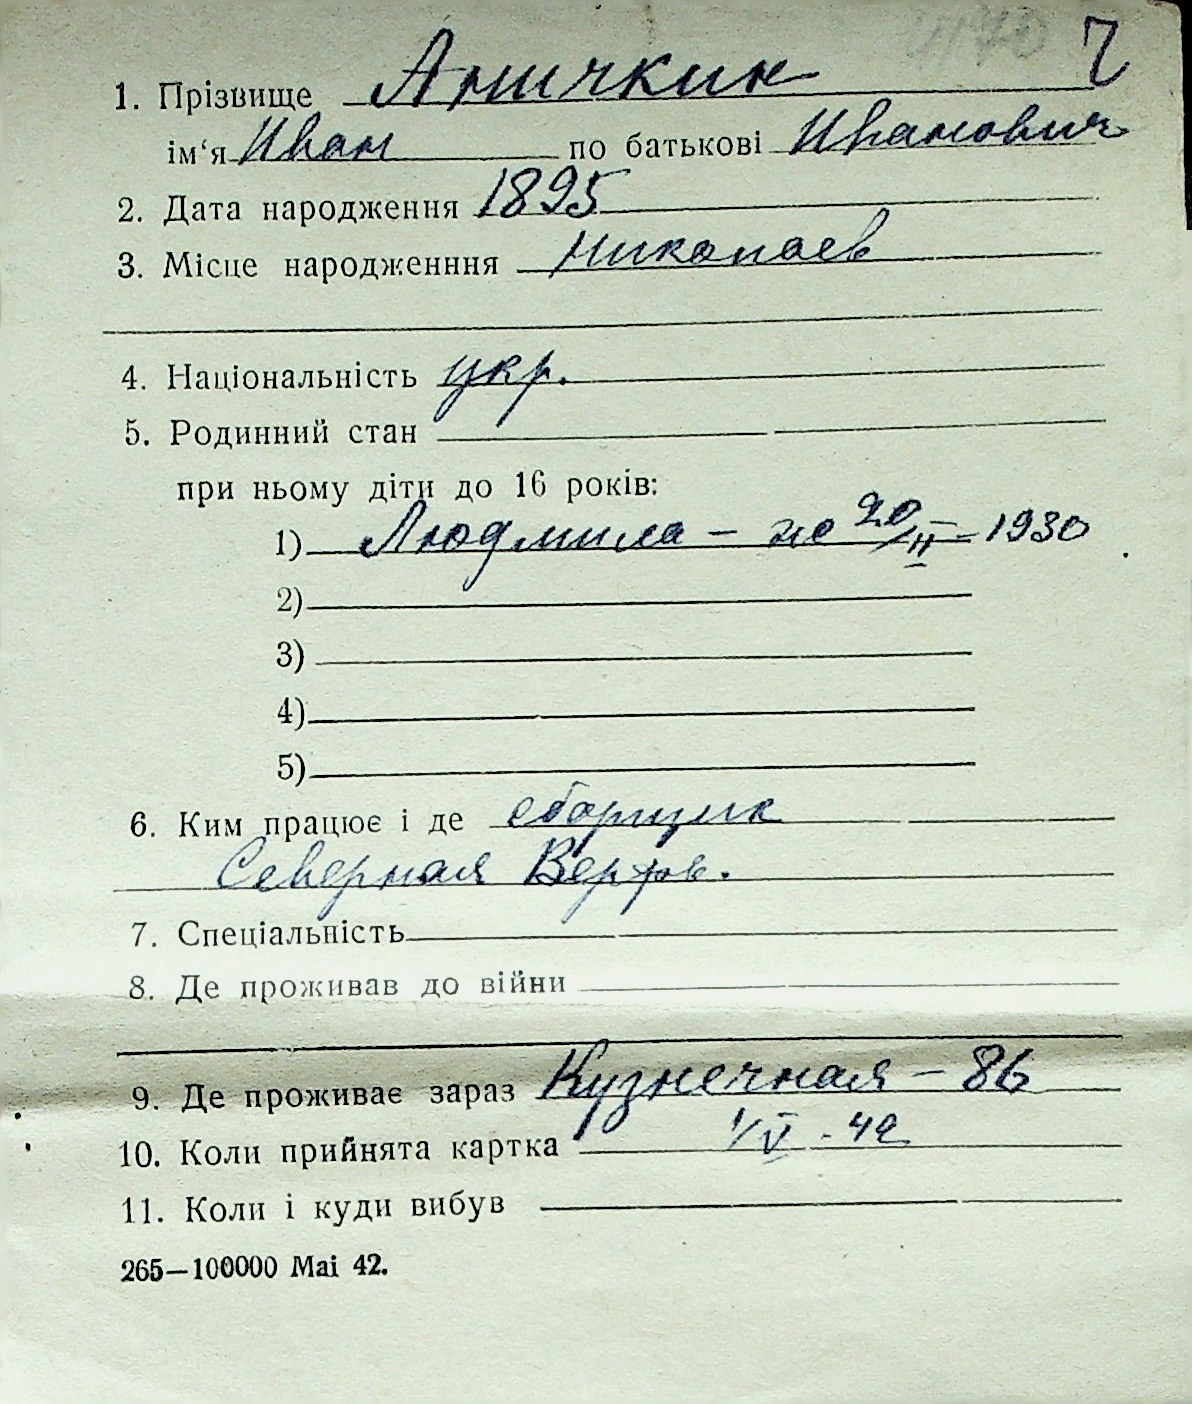 4170 7
1. Прізвище Аничкин
ім‘я Иван по батькові Иванович
2. Дата народження 1895
3. Місце народженння Николаев
4. Національність укр.
5. Родинний стан
при ньому діти до 16 років:
1) Людмила – 20/II – 1930
2)
3)
4)
5)
6. Ким працює і де сборщик
Северная Верфь.
7. Спеціальність
8. Де проживав до війни
9. Де проживає зараз Кузнечная – 86
10. Коли прийнята картка 1/V - 42
11. Коли і куди вибув
265—100000 Mai 42.